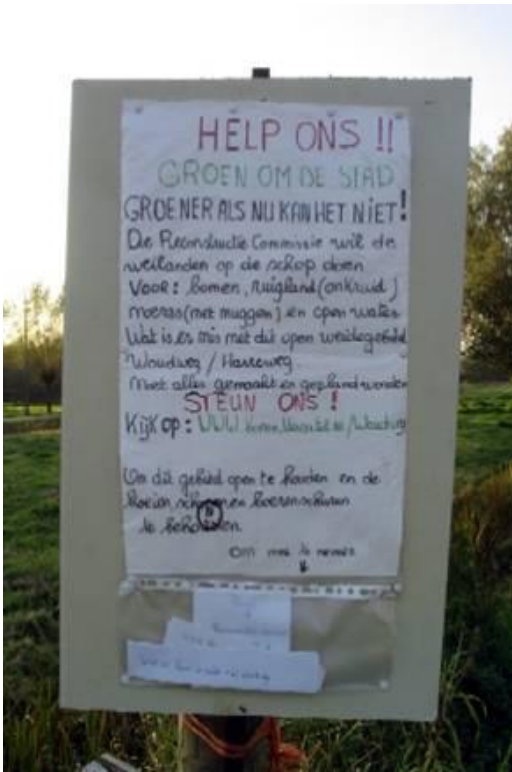 HELP ONS !!
GROEN OM DE STAD
GROENER ALS NU KAN HET NIET!
De Reconstructie Commissie wil de
weilanden op de schop doen
Voor: bomen, ruigland (onkruid)
moeras (met muggen) en open water
Wat is er mis met dit open weidegebied
Woudweg / Harreweg.
Moet alles gemaakt en gepland worden
STEUN ONS !
Kijk op: WWW
Om dit gebied open te houden en de
koeien schapen en boerenschuren
te behouden.
om mee te nemen